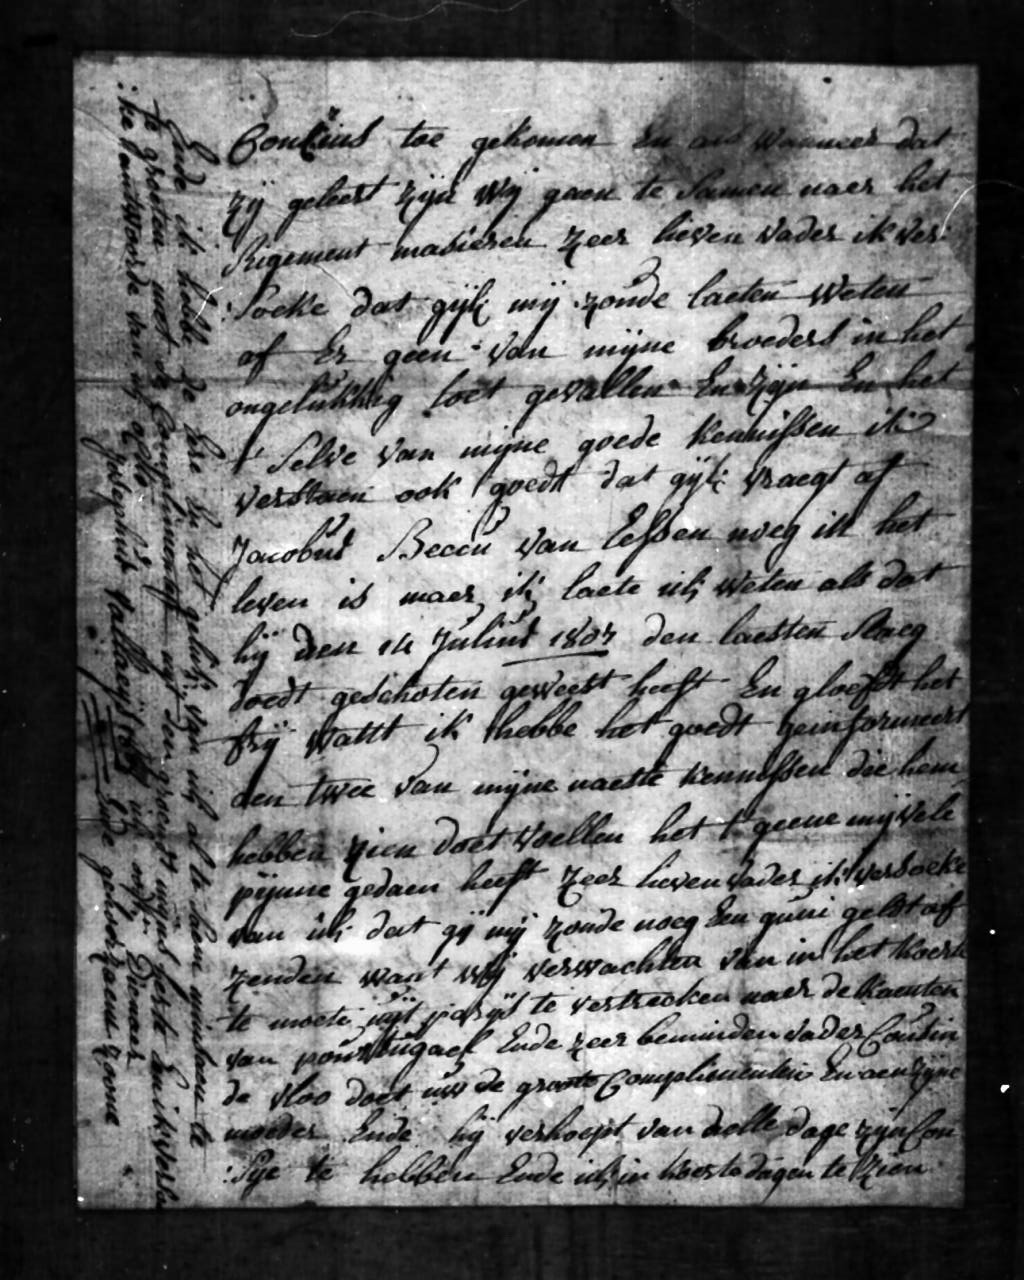 Conscius toe gekomen En wanneer dat
zij geleert zijn wij gaen te samen naer het
Rigement maricren zeer lieven vader ik ver:
:soeke dat gijl: mij zoude laeten weten
af Er geen van mijne broeders in het
ongelukkig loet gevallen En zijn En het
t'selve van mijne goede kennissen ik
verstaen ook goedt dat gijl: vraegt af
Jacobus Beccu van Essen noeg in het
leven is maer ik laete ul: weten als dat
hij den 14 Julius 1807 den laesten slaeg
doedt geschoten geweest heeft En gloeft het
frij watit ik hebbe het goedt geinformeert
aen twee van mijne naeste kennissen die hem
hebben zien doet voellen het t'geene mij vele
pijnne gedaen heeft zeer lieven vader ik versoeke
van ul: dat gij mij zoude noeg Een geldt af
zenden want wij verwachten van in het koerte
te moete uijt parijs te vertrecken naer de kaenten
van pourtugael Ende zeer beminden vader Cousin
de vloo doet uw de groote Complimenten En aen zijne
moeder Ende hij verhoept van dolle dage zijn Con
:syé te hebben Ende ul: in koerte dagen te zien
Ende ik hebbe de Ere En het geluk van ul: al te saemen te
te groeten met de Complimenten uijt den grondt mijns herte En ik verla
:ke d'antwoorde van ul: Dienaer
josephus Ende gehoorzaem zoone